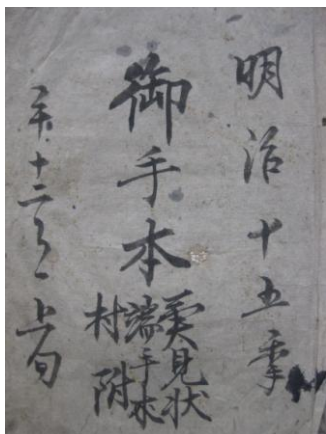 明治十五季
御手本
異見状
端手本
村附
十二月上旬